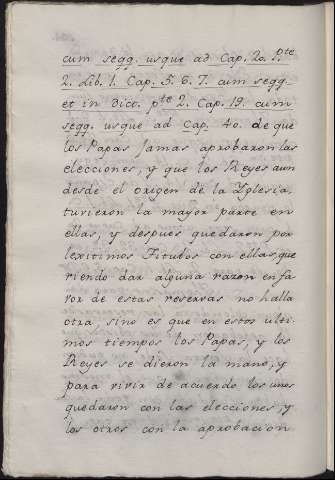 cum segg. usque ad Cap. 20. P.te
2. Lib. 1. Cap. 5. 6. 7. cum segg.
et in dicc. pte 2. Cap. 19. cum
segg. usque ad Cap. 40. de que
los Papas Jamas aprobaron las
elecciones, y que los Reyes aun
desde el origen de la Yglesia,
tuvieron la mayor parte en
ellas, y despues quedaron por
lexitimos Titulos con ellas, que
riendo dar alguna razon en fa
vor de estas reservas no halla
otra sino es que en estos ulti
mos tiempos los Papas, y los
Reyes se dieron la mano, y
para vivir de acuerdo los unos
quedaron con las elecciones, y
los otros con la aprobacion